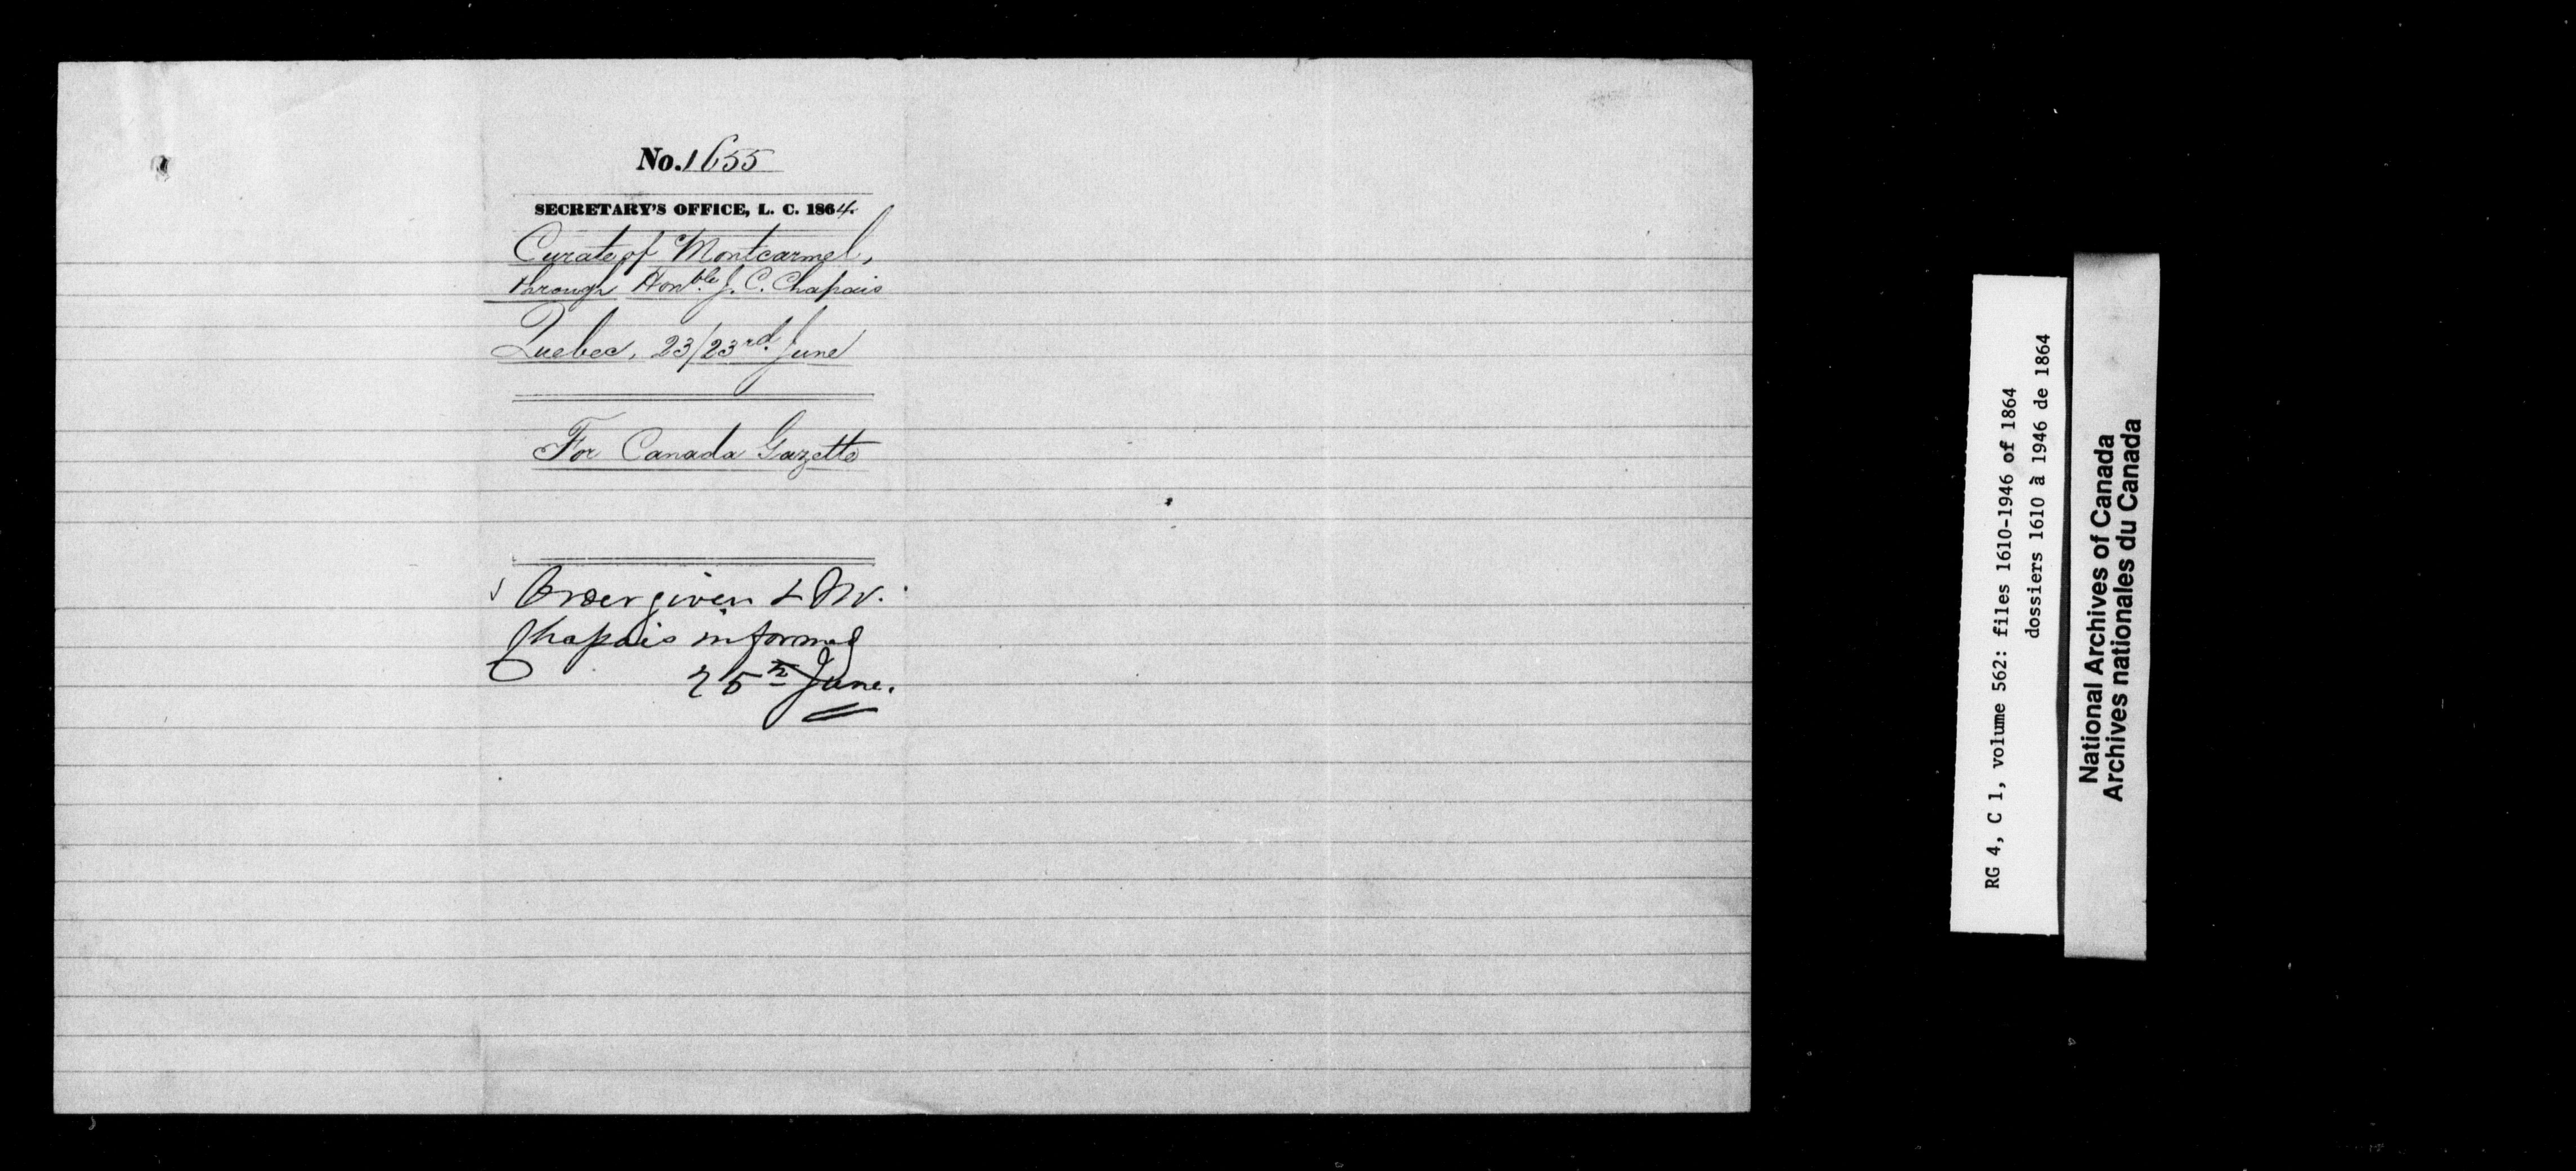 No. 1655
SECRETARY'S OFFICE, L. C. 1864.
Curate of Montcarmel,
through Honble. J. C. Chapais
Quebec, 23/23rd. June
For Canada Gazette
Order given & Mr.
Chapais informed
25th June.
RG 4, C 1, volume 562: files 1610-1946 of 1864
dossiers 1610 à 1946 de 1864
National Archives of Canada
Archives nationales du Canada